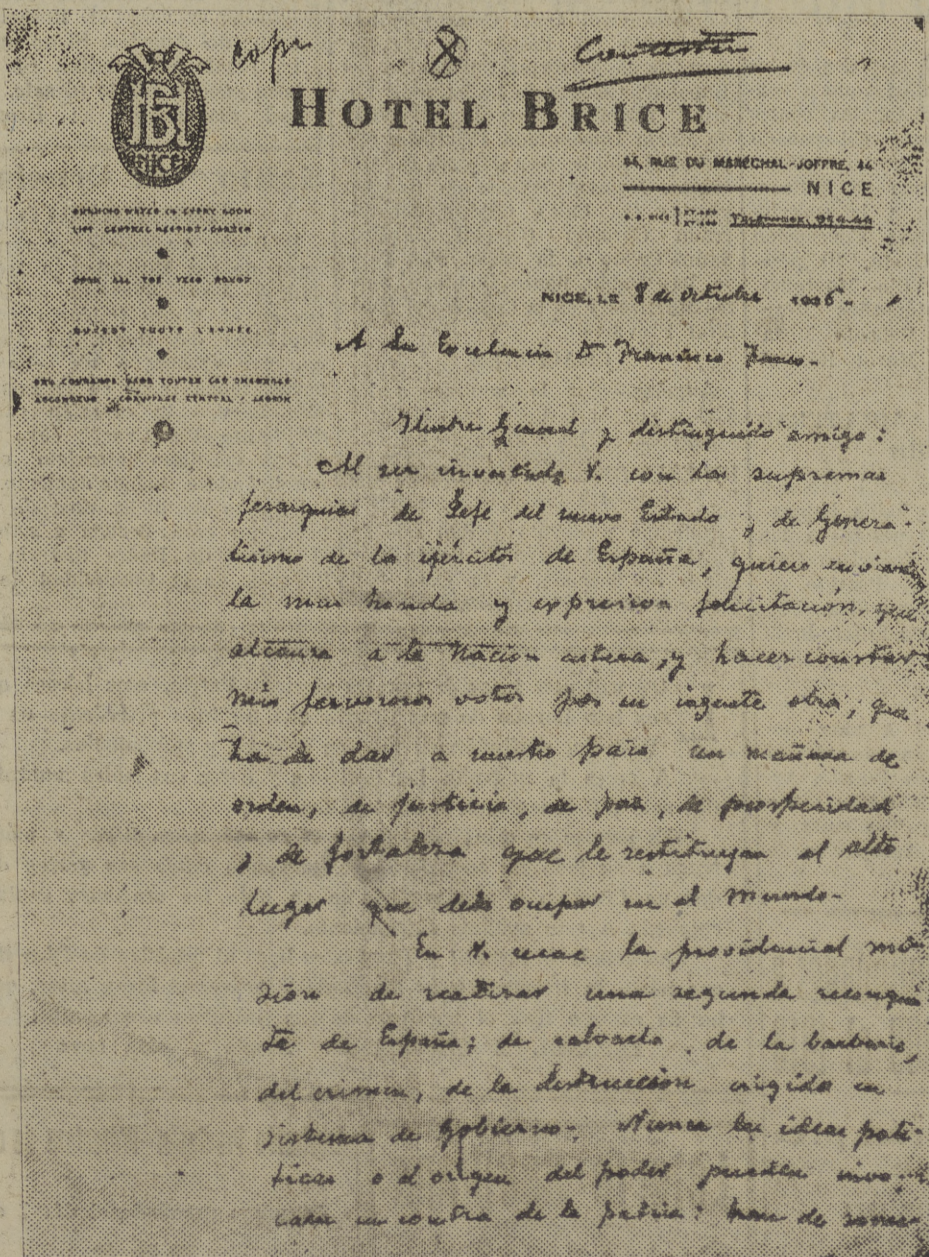 copi
Contestar
HOTEL BRICE
HB
NICE
44, RUE DU MARÉCHAL-JOFFRE, 44
NICE
R.C. NICE
RUNNING WATER IN EVERY ROOM
LIFT CENTRAL HEATING-GARDEN
OPEN ALL THE YEAR ROUND
OUVERT TOUTE L'ANNÉE
EAU COURANTE DANS TOUTES LES CHAMBRES
ASCENSEUR - CHAUFFAGE CENTRAL - JARDIN
NICE, LE 8 de Octubre 1936-
A Su Excelencia Dn Francisco Franco-
Ilustre General y distinguido amigo:
Al ser investido V. con las supremas
jerarquias de Jefe del nuevo Estado y de Genera-
lisimo de los ejércitos de España, quiero enviarle
la mas honda y expresiva felicitación, que
alcanza a la Nación entera, y hacer constar
mis fervorosos votos por su ingente obra, que
ha de dar a nuestro pais un mañana de
orden, de justicia, de paz, de prosperidad
y de fortaleza que le restituyan al alto
lugar que debe ocupar en el mundo-
En V. recae la providencial mi-
sión de realizar una segunda reconquis-
ta de España; de salvarla de la barbarie,
del crimen, de la destrucción erigida en
sistema de Gobierno- Nunca las ideas poli-
ticas o el origen del poder pueden invo-
carse en contra de la patria: han de